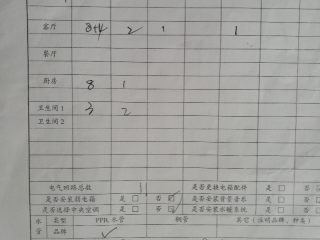 客厅 3+4 2 1 1
餐厅
厨房 8 1
卫生间1 3 2
卫生间2
电气回路总数 是否更换电箱配件 是 □ 否 □
是否安装弱电箱 是 □ 否 ☑ 是否安装背景音乐 是 □ 否 □
是否选择中央空调 是 □ 否 ☑ 是否安装水暖系统 是 □ 否 □
水 类型 PPR水管 铜管 其它（注明品牌、种类）
管 品牌 ✓